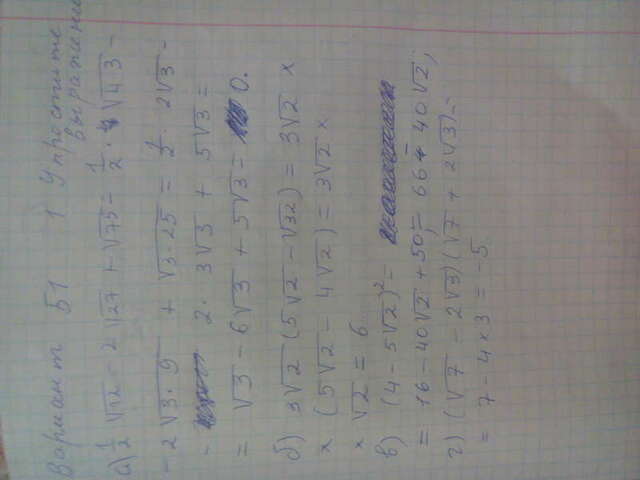 Вариант Б1 1 Упростите
выражение
а) 1/2 √12 - 2√27 + √75 = 1/2 · √4·3 -
- 2√3·9 + √3·25 = 1/2 · 2√3 -
- 2 · 3√3 + 5√3 =
= √3 - 6√3 + 5√3 = 0.
б) 3√2 (5√2 - √32) = 3√2 ×
× (5√2 - 4√2) = 3√2 ×
× √2 = 6
в) (4 - 5√2)² =
= 16 - 40√2 + 50 = 66 - 40√2;
г) (√7 - 2√3)(√7 + 2√3) =
= 7 - 4 × 3 = -5